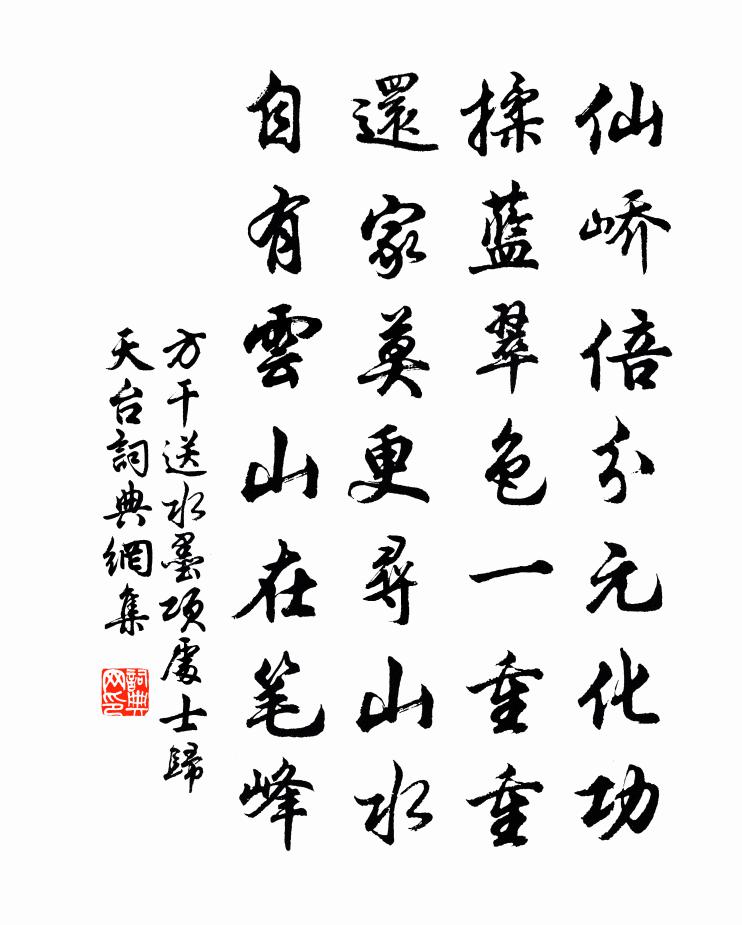 仙峤倍分元化功
揉藍翠色一重重
還家莫更尋山水
自有雲山在笔峰
方干送水墨项處士歸
天台詞典網集
詞典网印